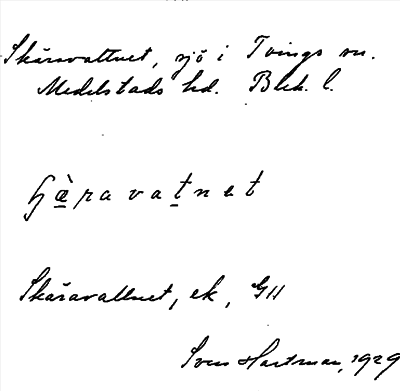 Skäravattnet, sjö i Tvings sn.
Medelstads hd. Blek. l.
ɧæ̀ravatnet
Skäravattnet, ek, GH
Sven Hartman, 1929